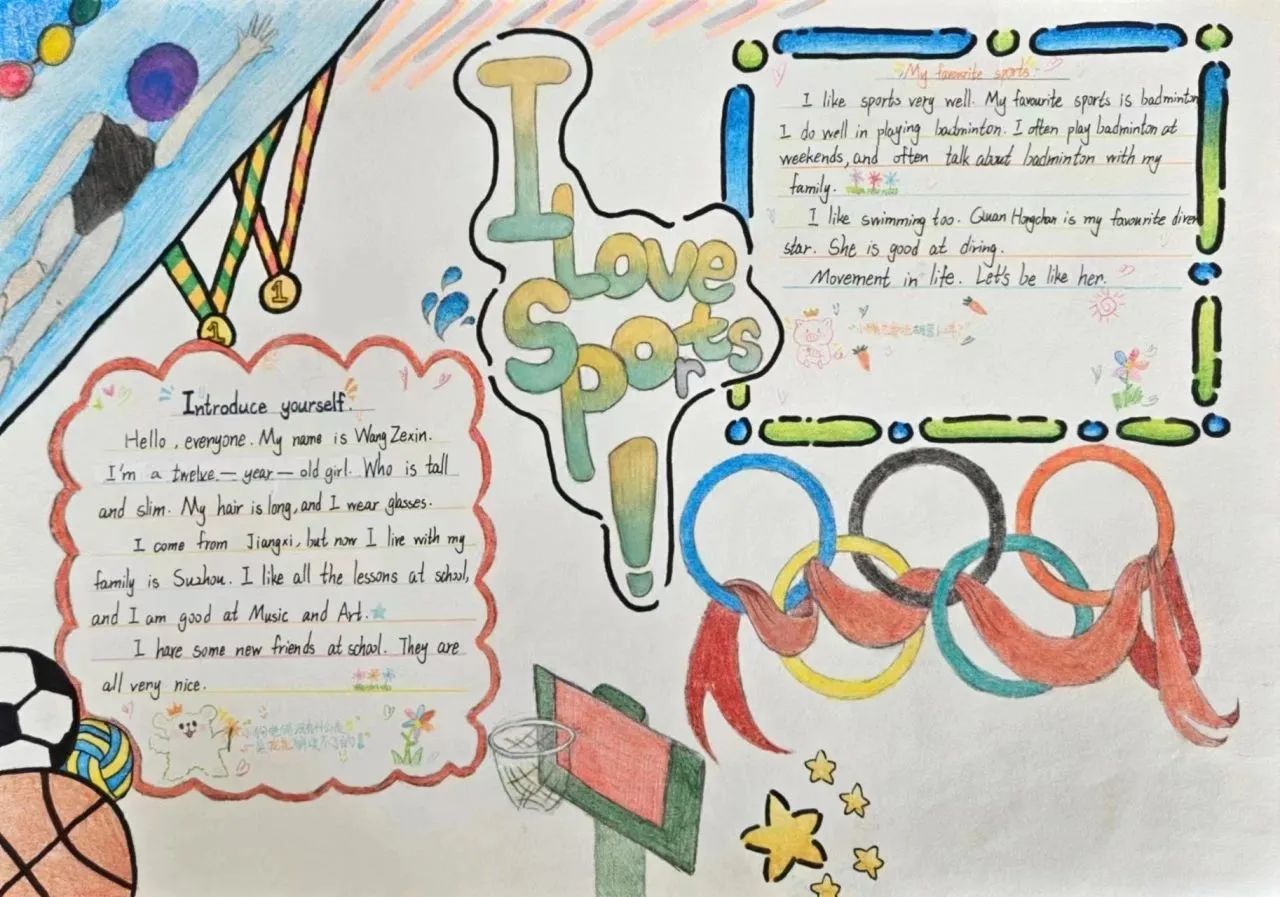 I Love
Sports!
1
1
Introduce yourself.
Hello, everyone. My name is Wang Zexin.
I'm a twelve — year — old girl. Who is tall
and slim. My hair is long, and I wear glasses.
I come from Jiangxi, but now I live with my
family is Suzhou. I like all the lessons at school,
and I am good at Music and Art.
I have some new friends at school. They are
all very nice.
My favourite sports.
I like sports very well. My favourite sports is badminton
I do well in playing badminton. I often play badminton at
weekends, and often talk about badminton with my
family.
I like swimming too. Quan Hongchan is my favourite diver
star. She is good at diring.
Movement in life. Let's be like her.